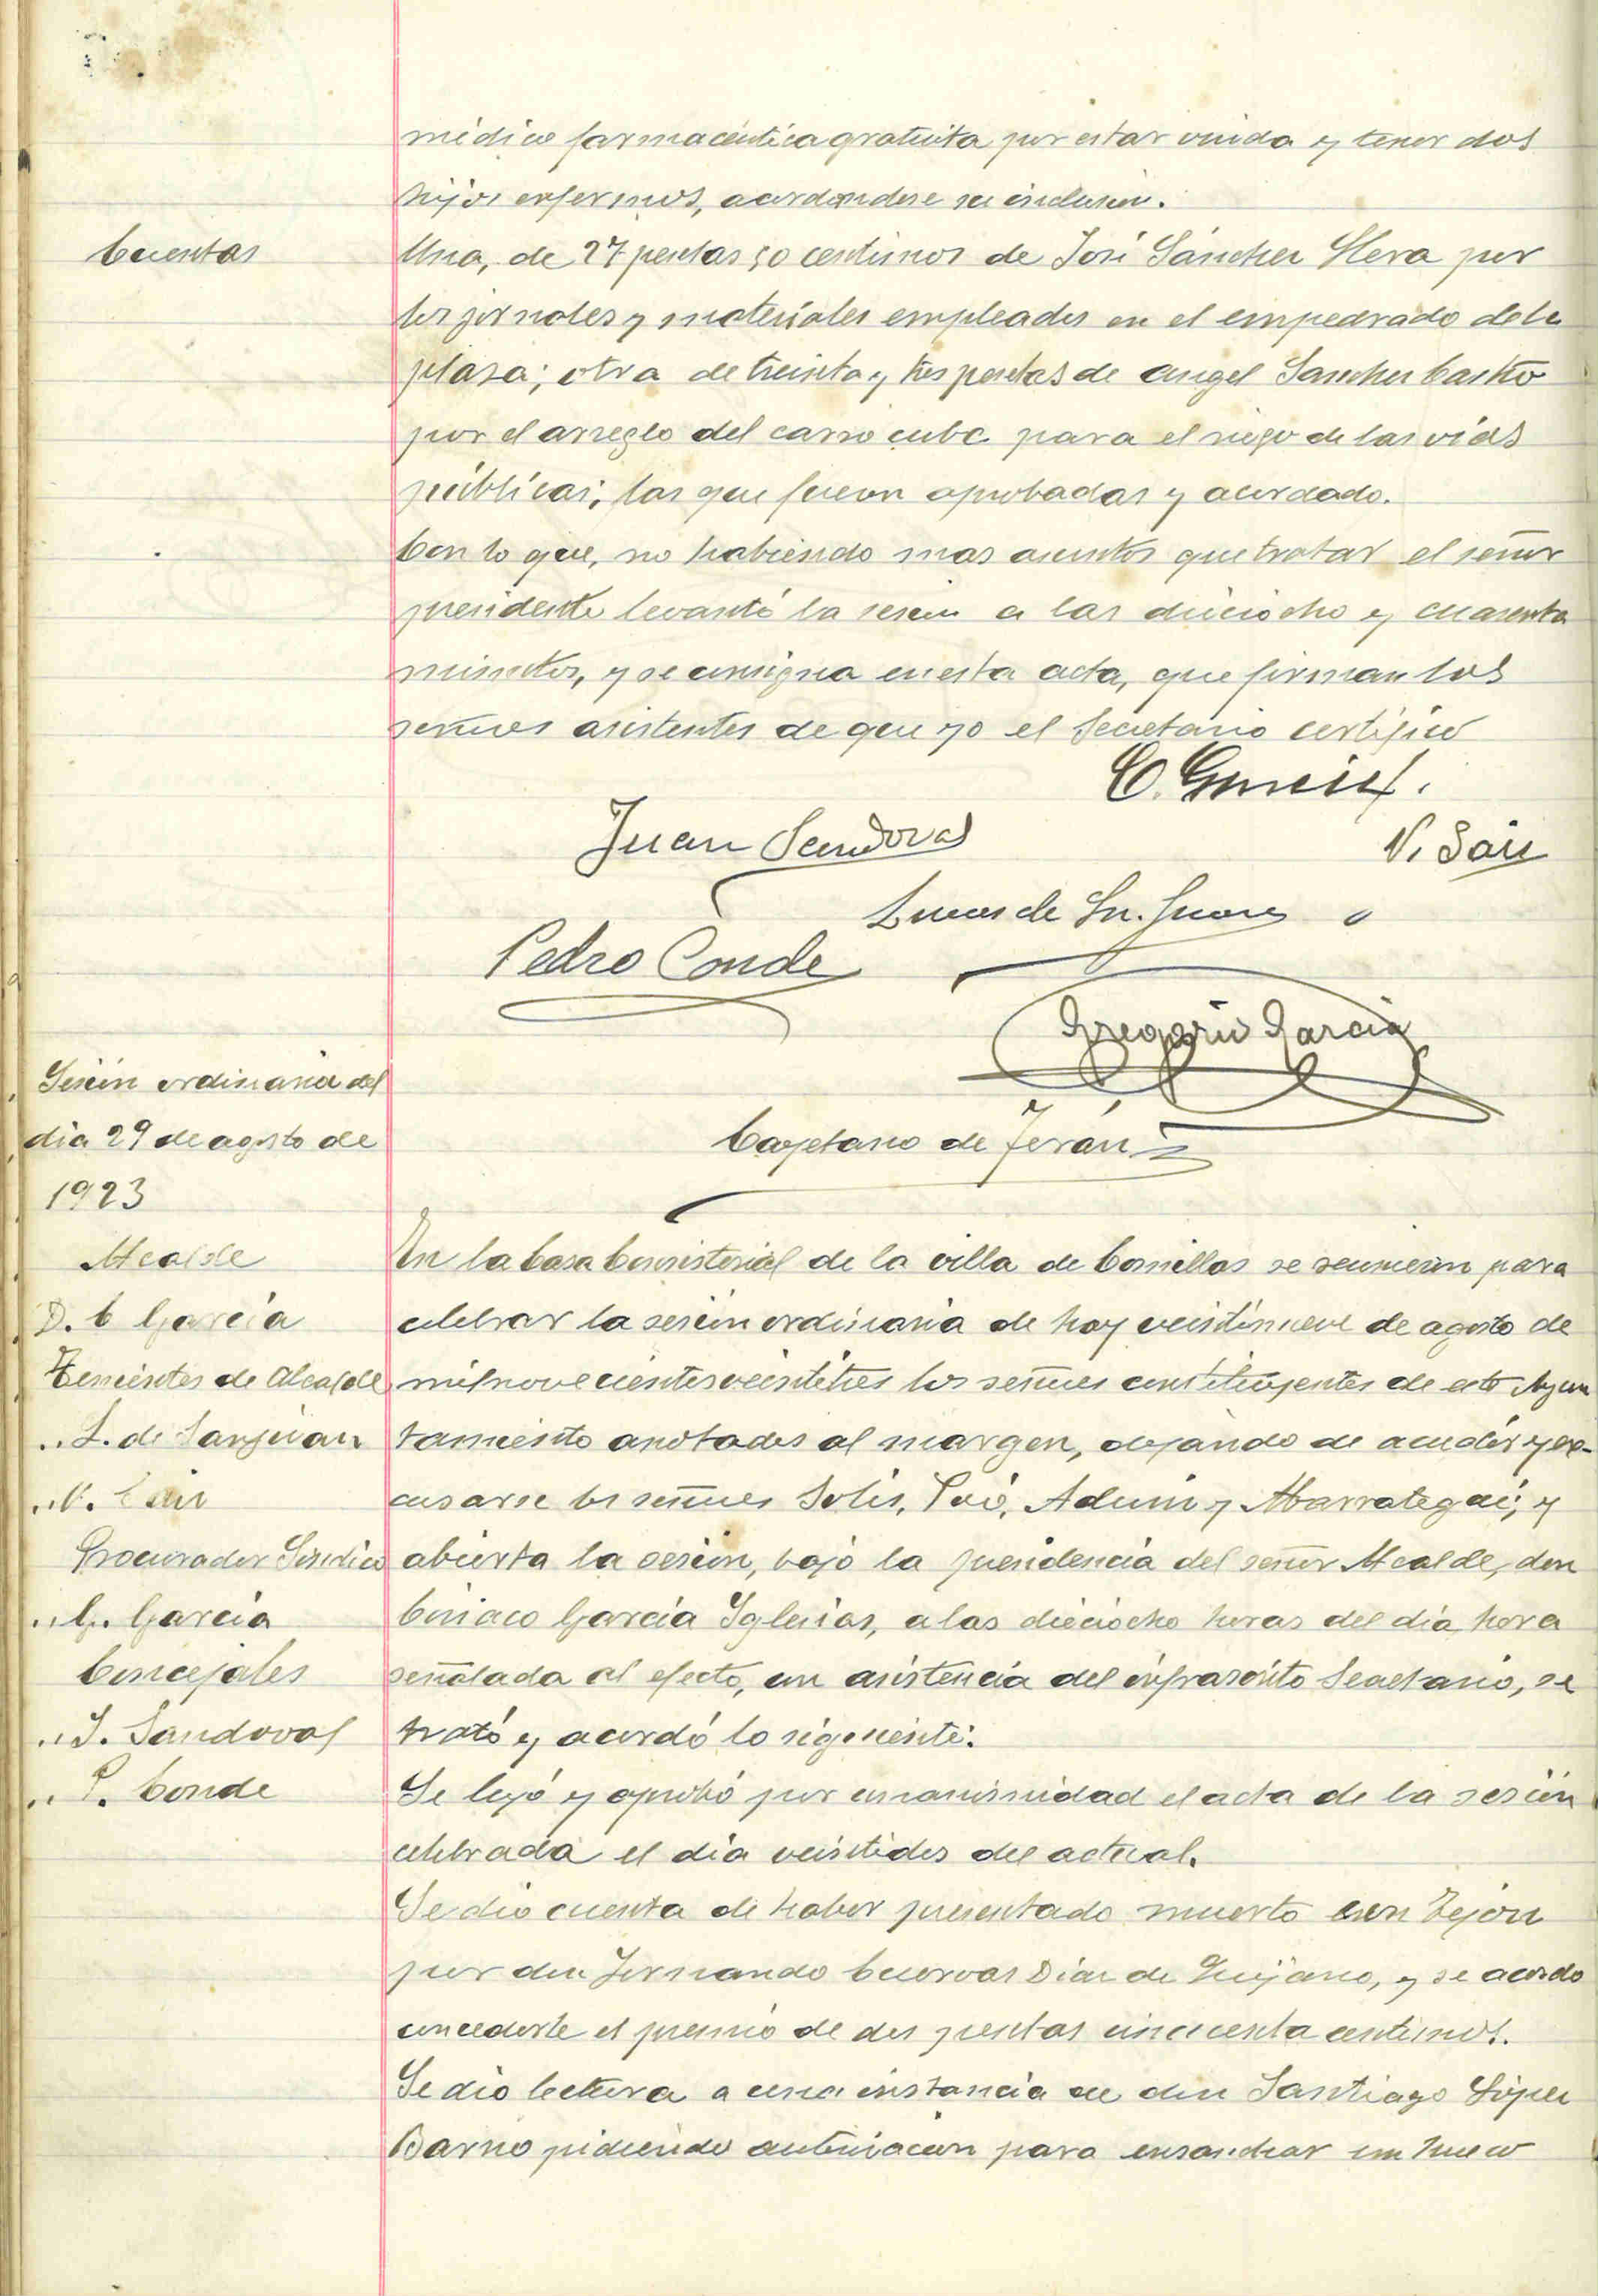 médico farmacéutica gratuita por estar viuda y tener dos
hijos enfermos, acordandose su inclusión.
Cuentas
Una, de 27 pesetas 50 centimos de José Sánchez Hera por
los jornales y materiales empleados en el empedrado de la
plaza; otra de treinta y tres pesetas de Angel Sanchez Castro
por el arreglo del carro cuba para el riego de las vias
públicas; las que fueron aprobadas y acordado.
Con lo que, no habiendo mas asuntos que tratar el señor
presidente levantó la sesión a las dieciocho y cuarenta
minutos, y se consigna en esta acta, que firman los
señores asistentes de que yo el Secretario certifico
C. García.
Juan Sandoval
V. Saiz
Lucas de Sn. Juan
Pedro Conde
Gregorio García
Cayetano de Terán
Sesión ordinaria del
dia 29 de agosto de
1923
Alcalde
D. C García
Tenientes de Alcalde
„ L. de Sanjuan
„ V. Saiz
Procurador Síndico
„ G. García
Concejales
„ J. Sandoval
„ P. Conde
En la Casa Consistorial de la villa de Comillas se reunieron para
celebrar la sesión ordinaria de hoy veintinueve de agosto de
mil novecientos veintitres los señores constituyentes de este Ayun
tamiento anotados al margen, dejando de acudir y ex-
cusarse los señores Solis, Adum y Abarrategui; y
abierta la sesión, bajo la presidencia del señor Alcalde, don
Ciriaco García Iglesias, a las dieciocho horas del día, hora
señalada al efecto, con asistencia del infrascrito Secretario, se
trató y acordó lo siguiente:
Se leyó y aprobó por unanimidad el acta de la sesión
celebrada el día veintidos del actual.
Se dio cuenta de haber presentado muerto un Tejon
por don Fernando Cuervas Diaz de Quijano, y se acordo
concederle el premio de dos pesetas cincuenta centimos.
Se dio lectura a una instancia de don Santiago López
Barno pidiendo autorización para ensanchar un hueco